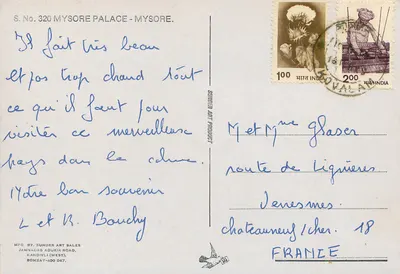 S. No. 320 MYSORE PALACE - MYSORE.
Il fait très beau
et pas trop chaud tout
ce qu'il faut pour
visiter ce merveilleux
pays dans le calme.
Notre bon souvenir
L et R. Bouchy
MFD. BY. SUNDER ART SALES
KANDIVLI (WEST),
BOMBAY-400 067.
1.00 भारत INDIA
2.00 भारत INDIA
KOVALAM
M et Mme Glaser
route de Lignières
Venesmes
chateauneuf/cher. 18
FRANCE